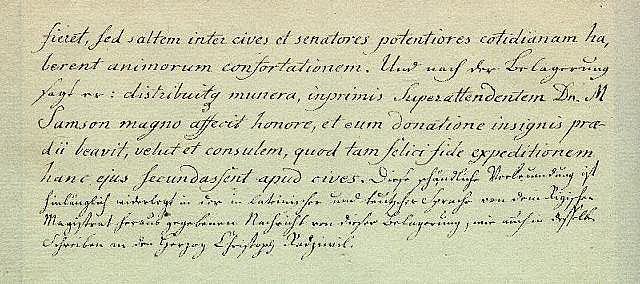 fieret, sed saltem inter cives et senatores potentiores cotidianam ha,
berent animorum confortationem. Und nach der Belagerung
sagt er: distribuitq munera, inprimis Superattendentem Dn. M
Samson magno affecit honore, et eum donatione insignis præ-
dii beavit, velut et consulem, quod tam felici fide expeditionem
hanc ejus secundassent apud cives. Diese schändliche Verleumdung ist
hinlänglich widerlegt in der in lateinischer und teutscher Sprache von dem Rigischen
Magistrat heraus gegebenen Nachricht von dieser Belagerung, wie auch in desselben
Schreiben an den Herzog Christoph Radziwil.